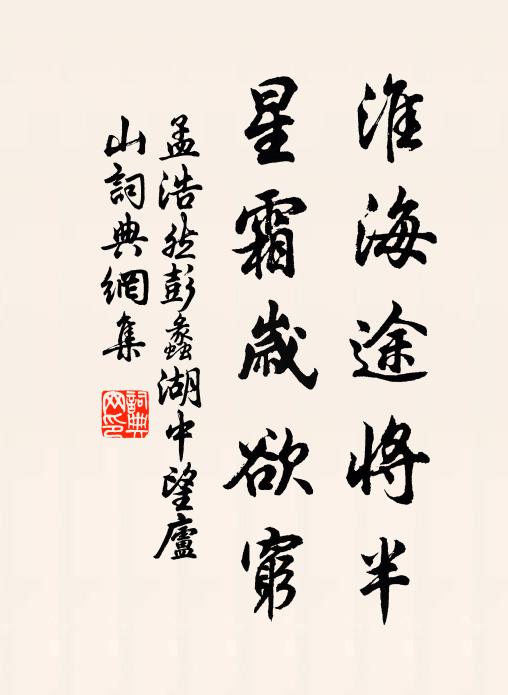 淮海途將半
星霜歲欲窮
孟浩然彭蠡湖中望廬
山詞典網集
詞典
网印